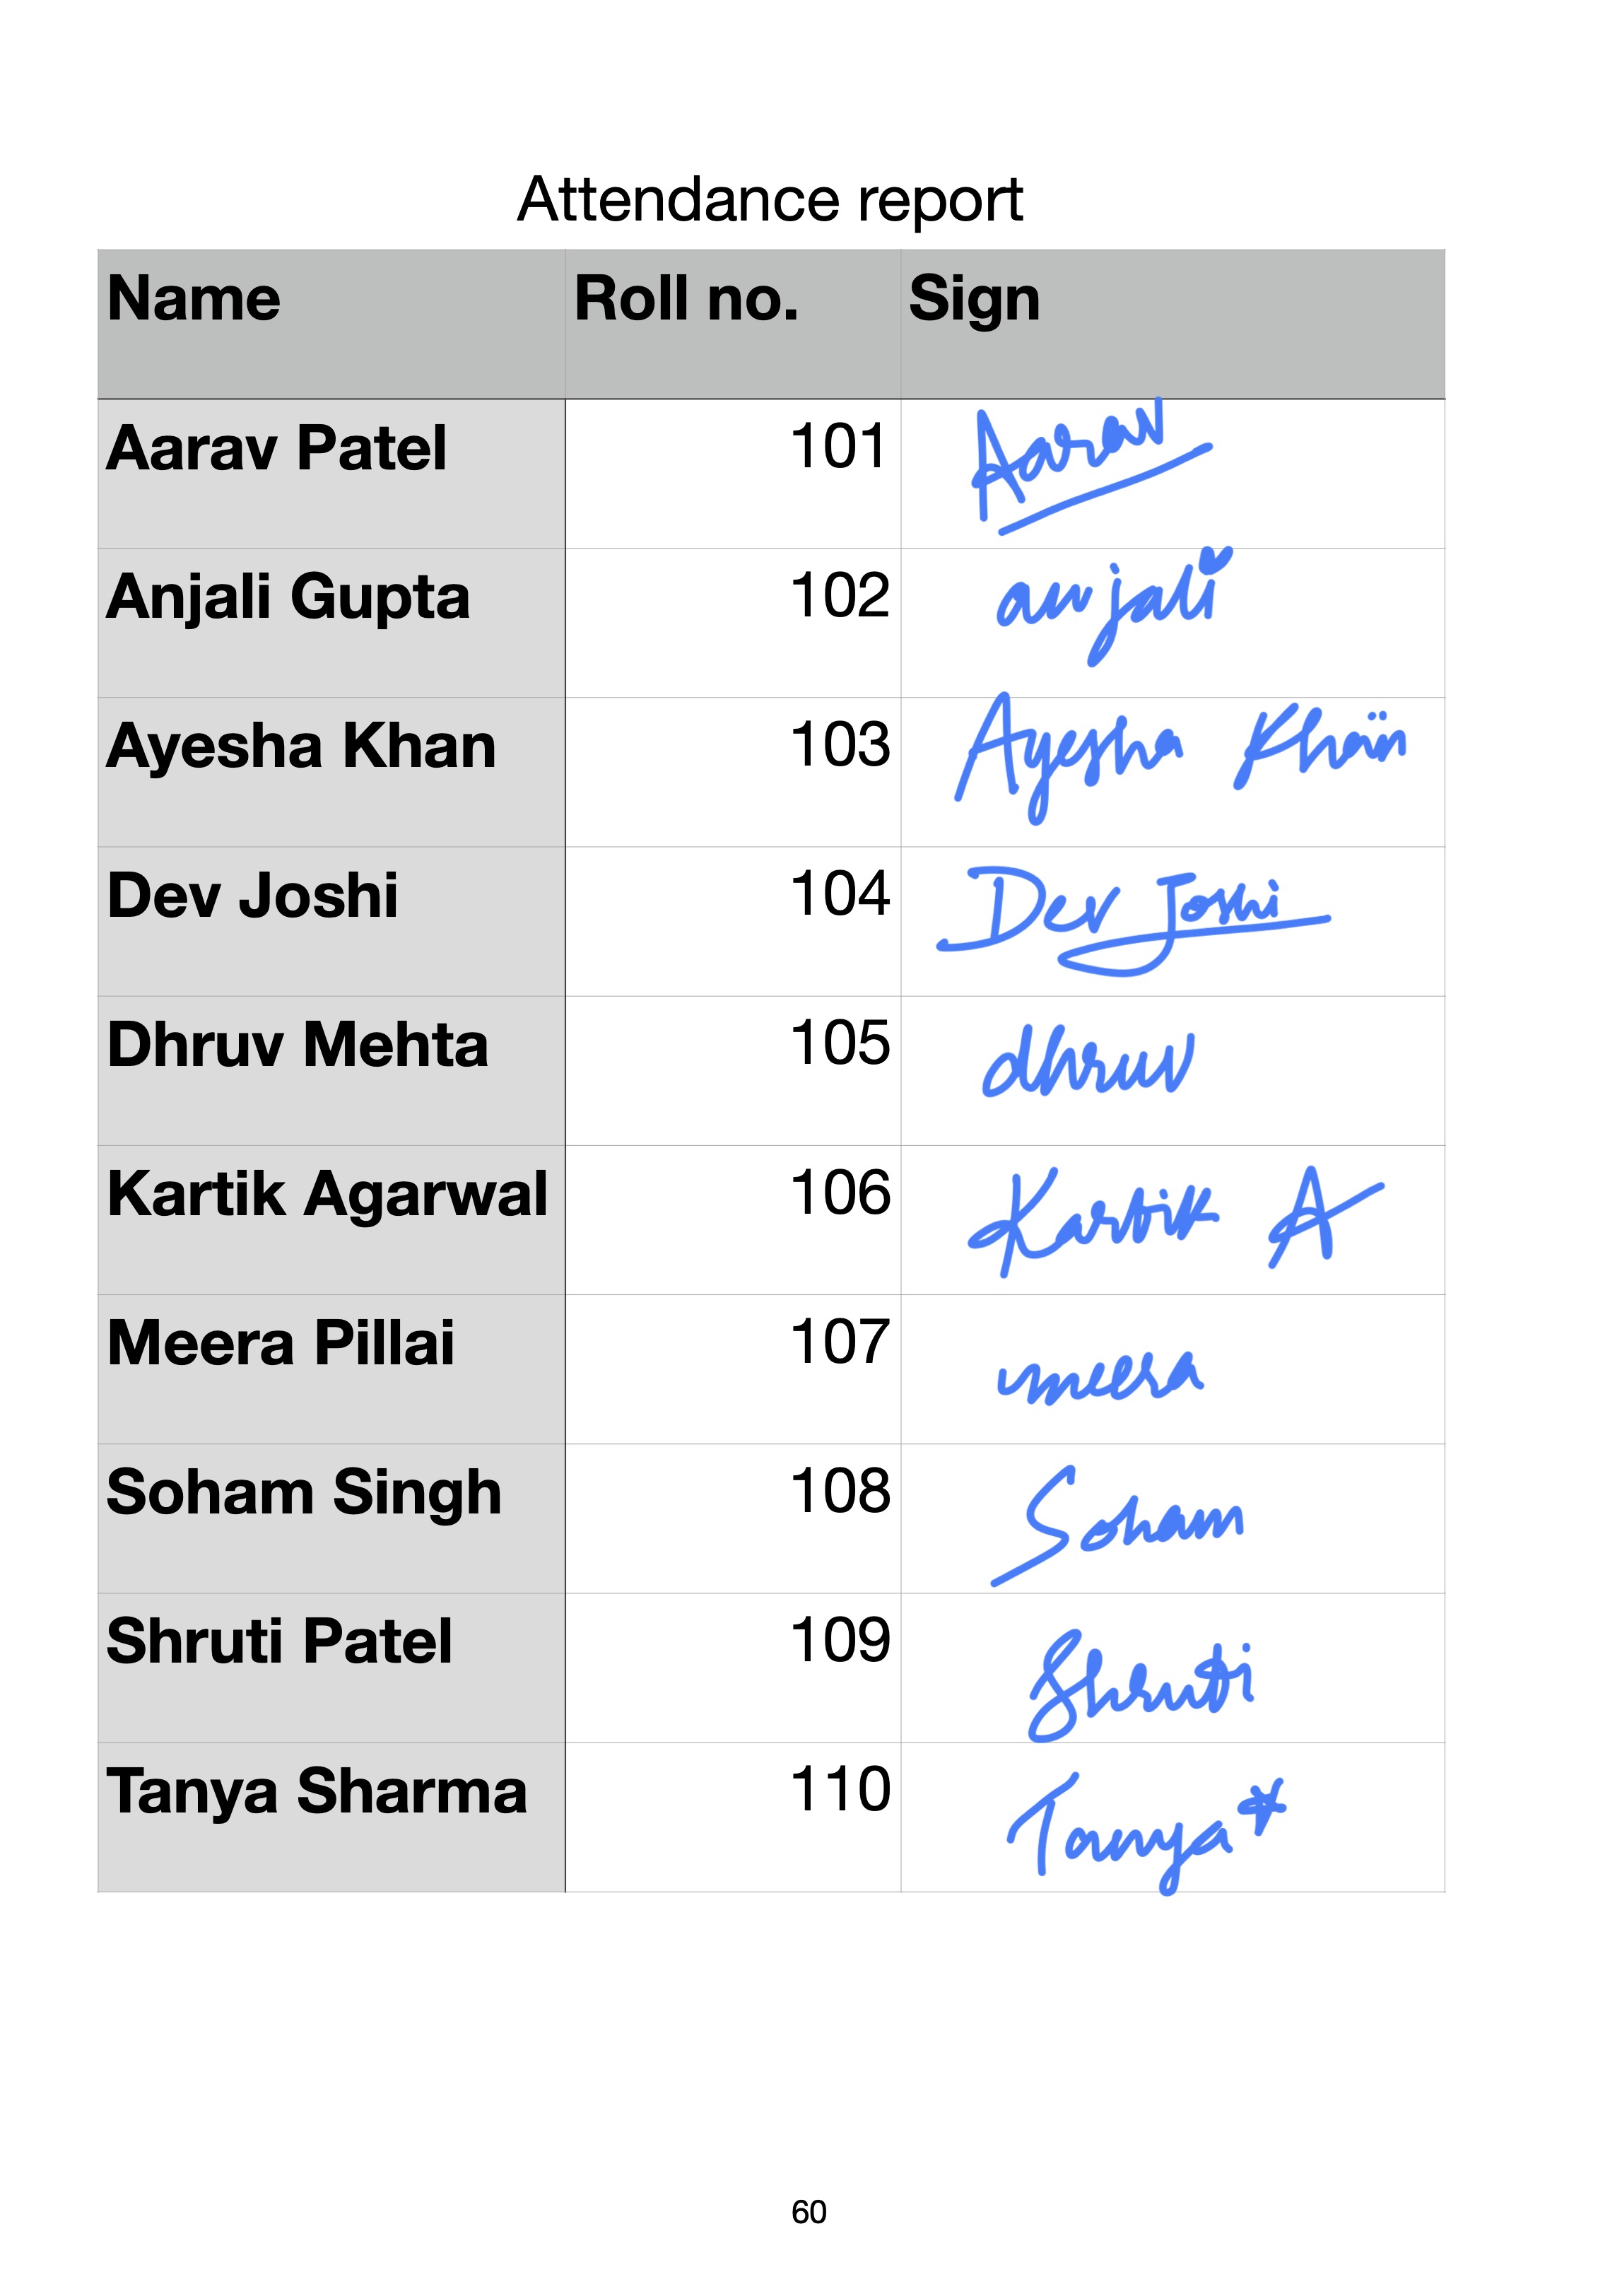 Attendance report
Name Roll no. Sign
Aarav Patel 101 Aarav
Anjali Gupta 102 anjali
Ayesha Khan 103 Ayesha Khan
Dev Joshi 104 Dev Joshi
Dhruv Mehta 105 dhruv
Kartik Agarwal 106 Kartik A
Meera Pillai 107 meera
Soham Singh 108 Soham
Shruti Patel 109 Shruti
Tanya Sharma 110 Tanya*
60